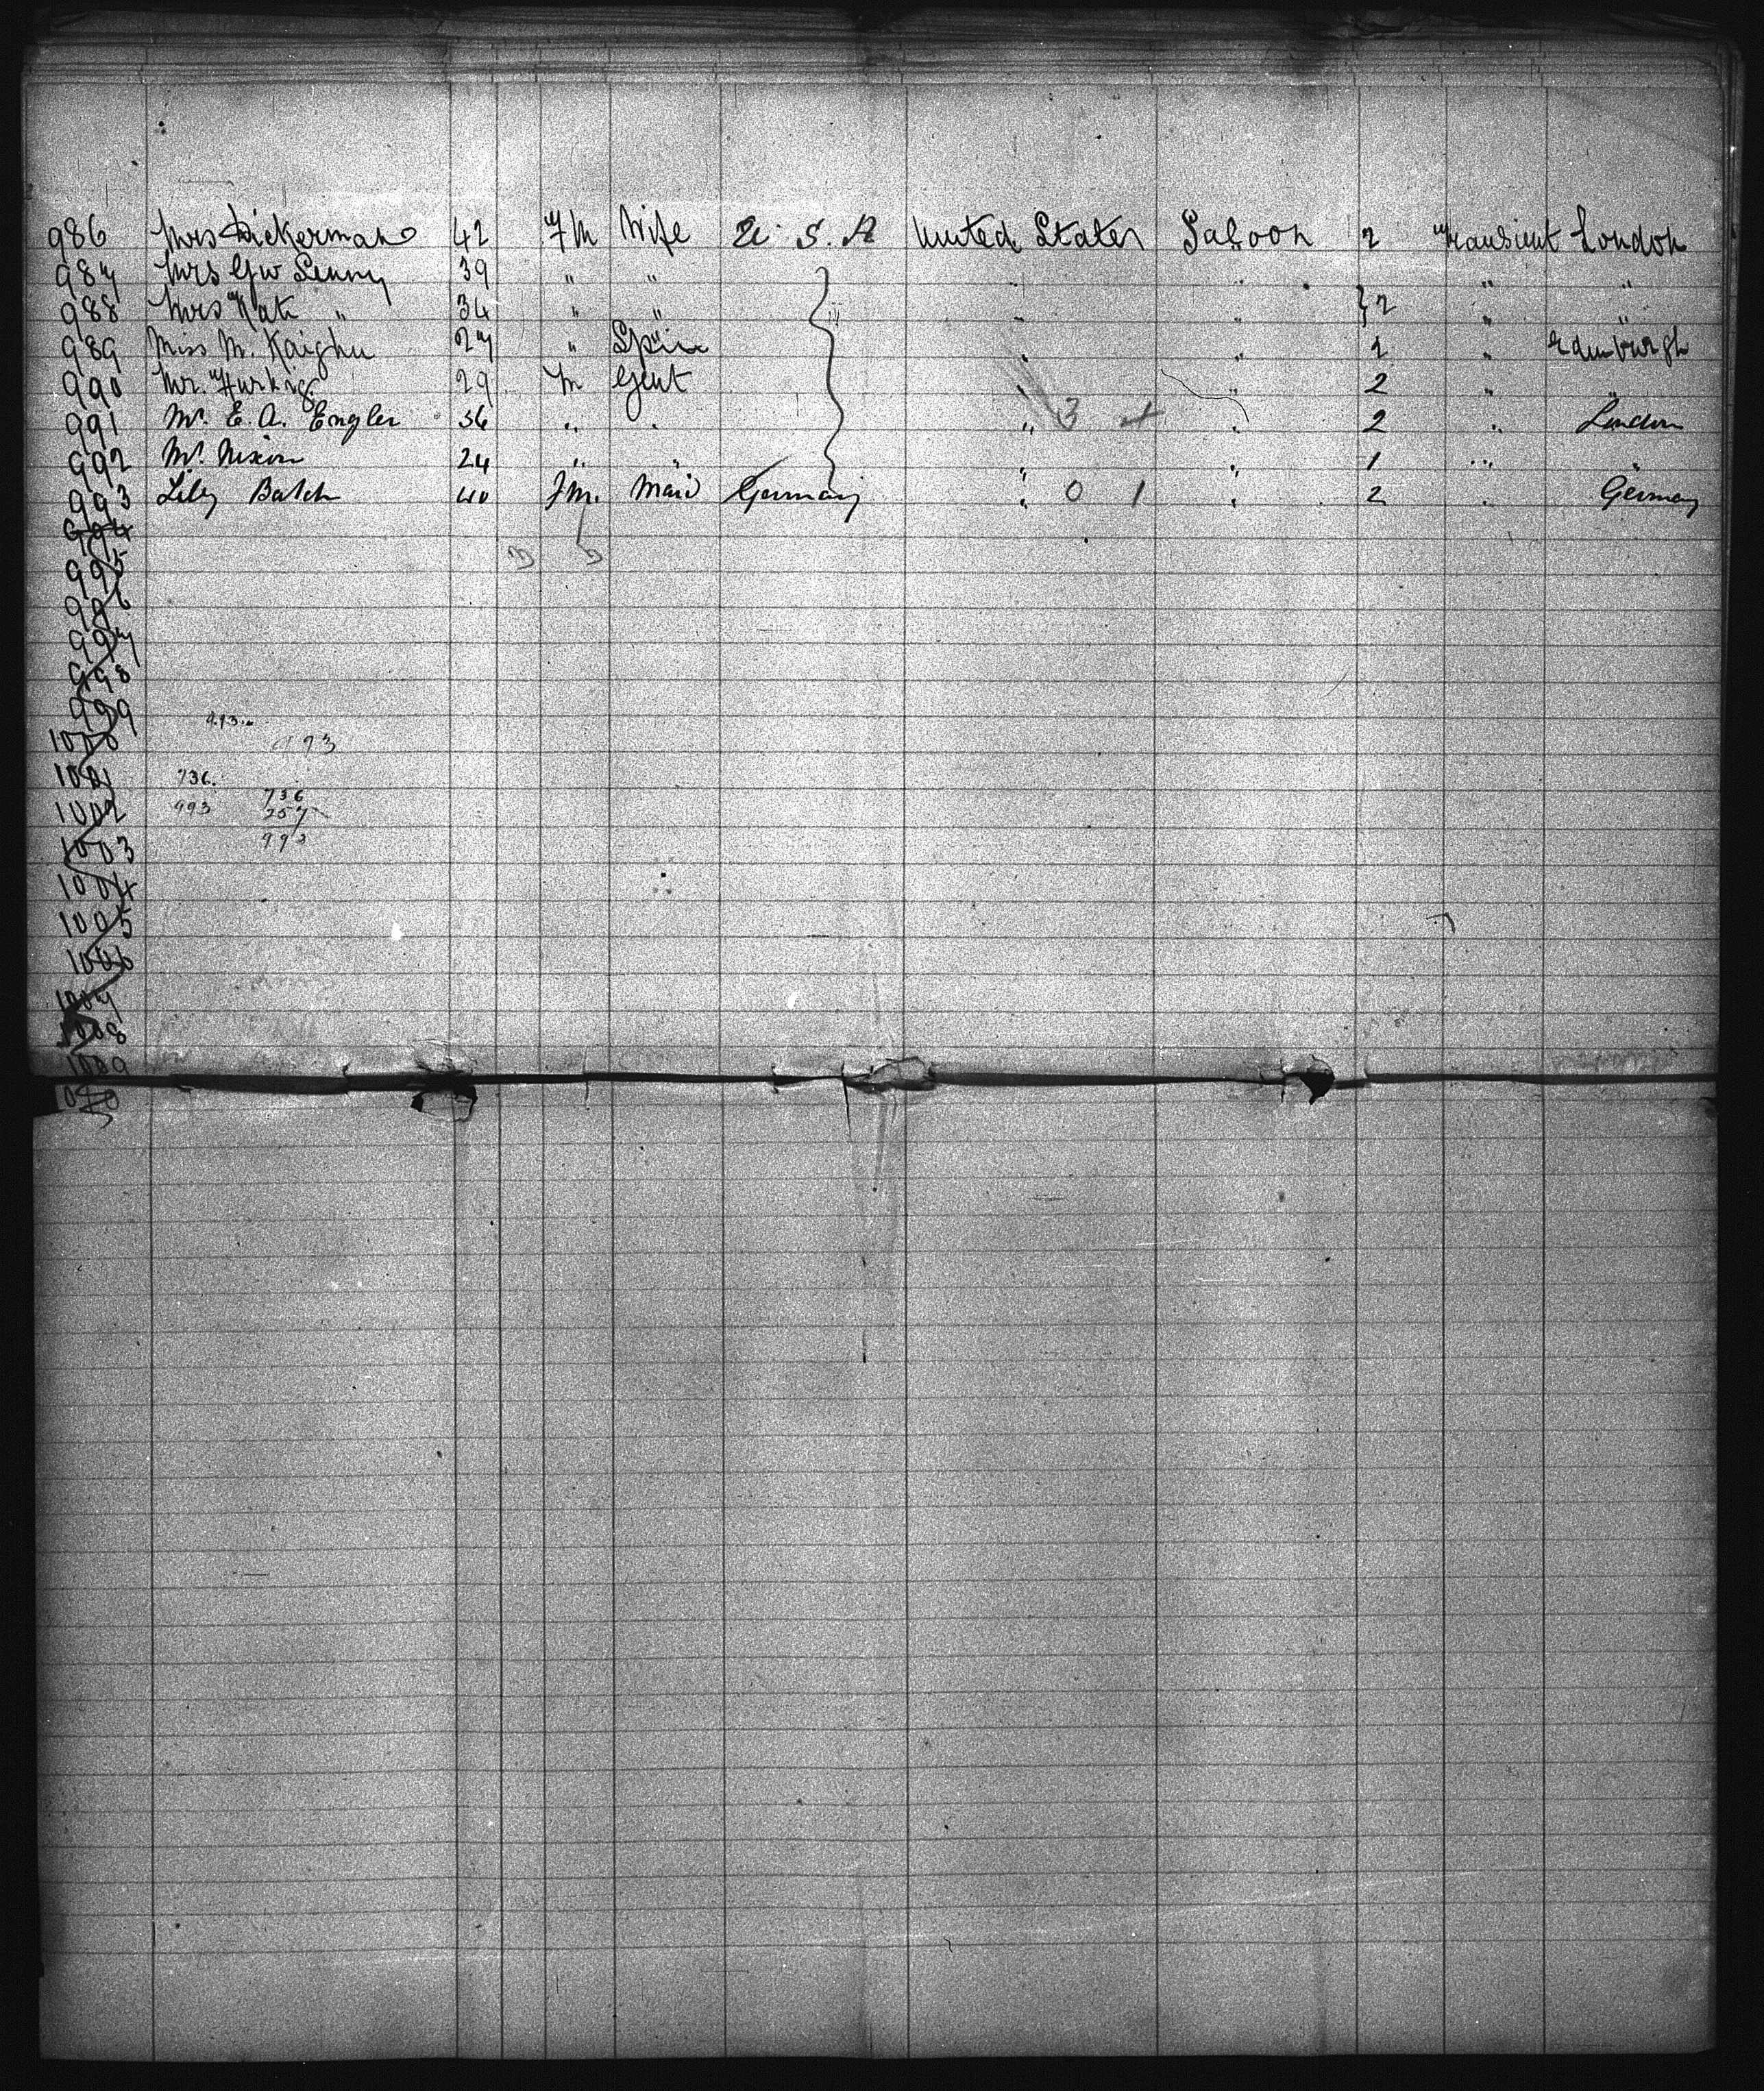 986 Mrs Dickerman 42 Fm Wife U. S. A United States Saloon 2 Transient London
987 Mrs GW Lenny 39 " " " " " "
988 Mrs Kate " 34 " " " " } 2 " "
989 Miss M. Kaighn 27 " Spin " " 1 " Edinburgh
990 Mr. 29 M Gent " 2 " "
991 Mr. E. A. Engler 36 " " " 3 " 2 " London
992 Mr. Nixon 24 " " " " 1 " "
993 Lily Balch 40 Fm. Maid Germany " 0 1 " 2 " Germany
994
995
996
997
998
999 993
1000 993
1001 736.
1002 993 736
257
1003 993
1004
1005
1006
1007
1008
1009